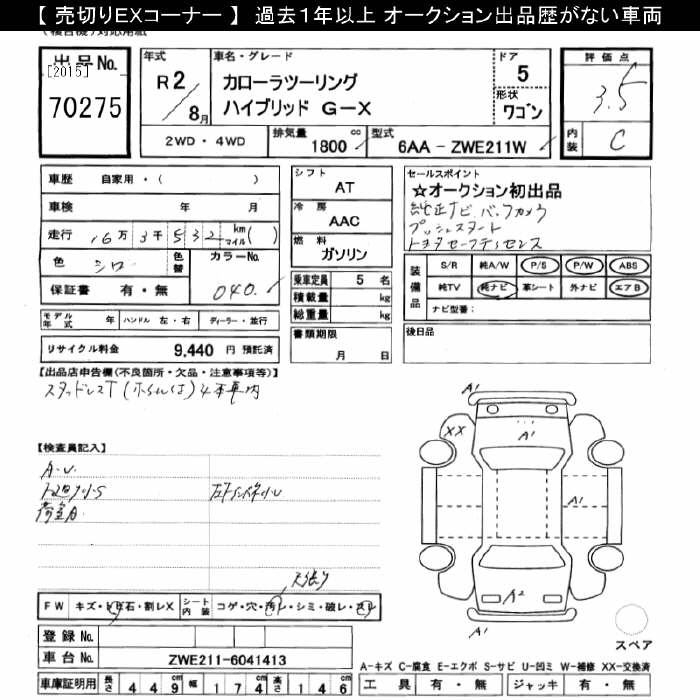 【 売切りEXコーナー 】 過去１年以上 オークション出品歴がない車両
出品No.
[2015]
70275
年式
R2/8月
車名・グレード
カローラツーリング
ハイブリッド G-X
ドア
5
形状
ワゴン
評価点
3.5
内装
C
2WD・4WD
排気量
1800 cc
型式
6AA - ZWE211W
車歴 自家用・( )
車検 年 月
走行 16万 3千 532 km マイル( )
色 シロ 色替 カラーNo.
040
保証書 有・無
モデル年式 年 ハンドル 左・右 ディーラー・並行
リサイクル料金 9,440 円 預託済
シフト
AT
冷房
AAC
燃料
ガソリン
乗車定員 5 名
積載量 kg
総重量 kg
書類期限
月 日
セールスポイント
☆オークション初出品
純正ナビ バックカメラ
プッシュスタート
トヨタセーフティセンス
装備品
S/R 純A/W P/S P/W ABS
純TV 純ナビ 革シート 外ナビ エアB
ナビ型番：
後日品
【出品店申告欄(不良箇所・欠品・注意事項等)】
スタッドレスT 4本車内
【検査員記入】
A・U
荷室A
天張り
A1
XX
A1
A1
A2
A1
スペア
FW キズ・トビ石・割レX シート内装 コゲ・穴・汚レ・シミ・破レ・スレ
登録No.
車台No. ZWE211-6041413
車庫証明用 長さ 449cm 幅 174cm 高さ 146cm
A-キズ C-腐食 E-エクボ S-サビ U-凹ミ W-補修 XX-交換済
工具 有・無 ジャッキ 有・無